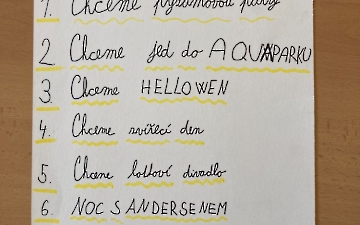 1. Chceme pyžamovou párty
2. Chceme jed do AQUAPARKU
3. Chceme HELLOWEN
4. Chceme zvířecí den
5. Chceme loltoví divadlo
6. NOC S ANDERSENEM